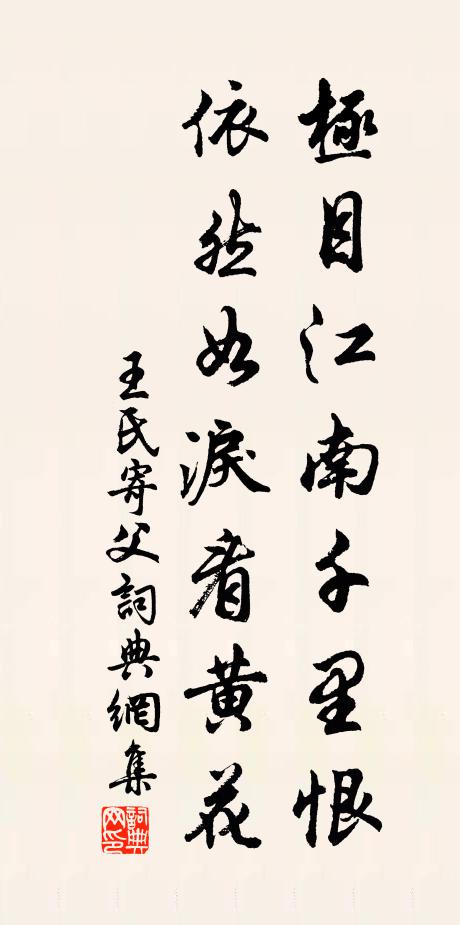 極目江南千里恨
依然如淚看黃花
王氏寄父詞典網集
詞典网印